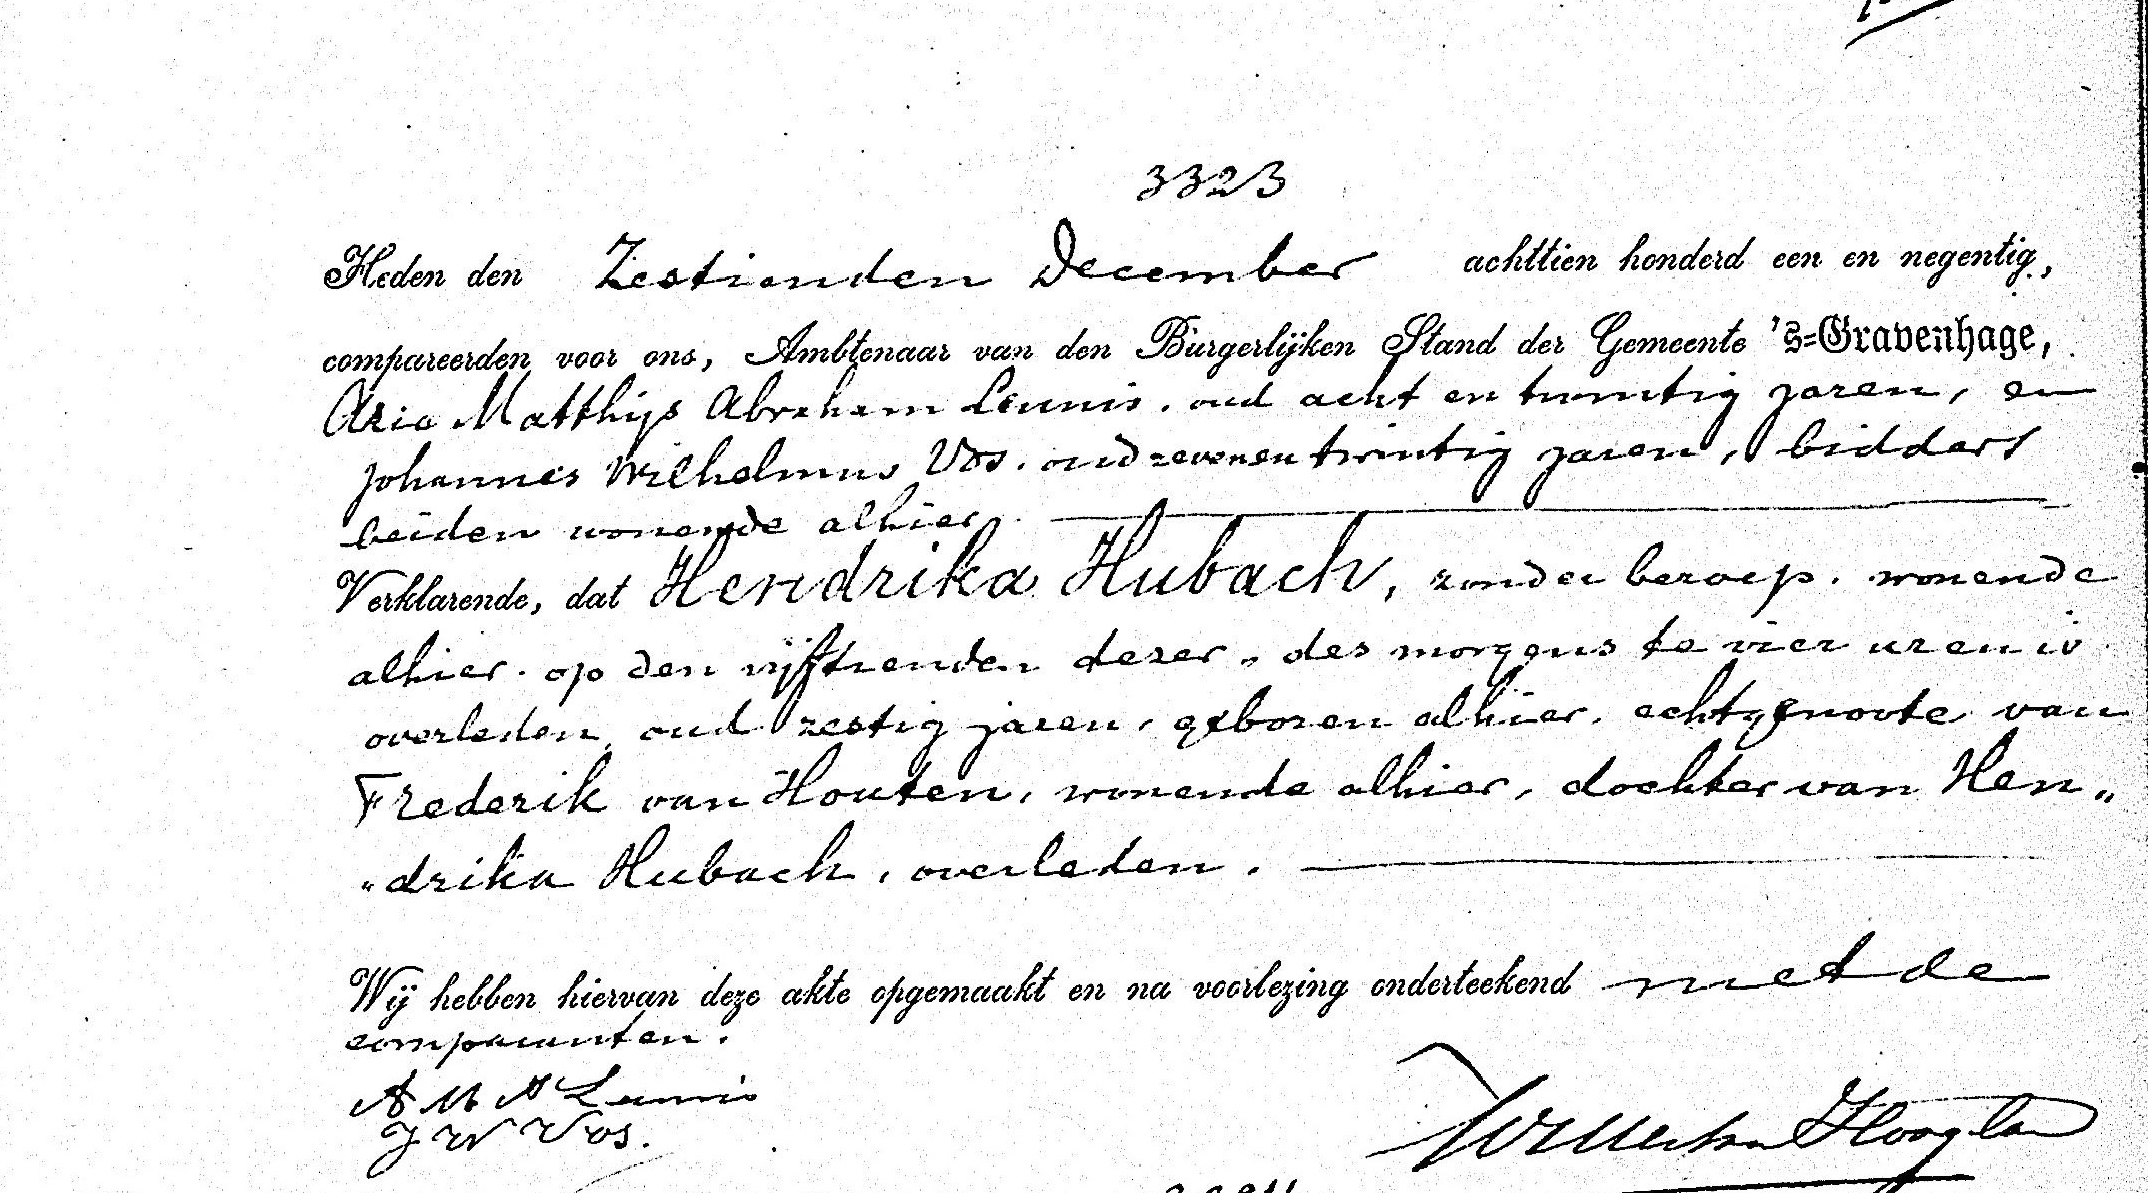 3323
Heden den Zestienden December achttien honderd een en negentig,
compareerden voor ons, Ambtenaar van den Burgerlijken Stand der Gemeente 's=Gravenhage,
Arie Matthijs Abraham Leunis, oud acht en twintig jaren, en
Johannes Wilhelmus Vos, oud zevenentwintig jaren, bidders
beiden wonende alhier.
Verklarende, dat Hendrika Hubach, zonder beroep, wonende
alhier, op den vijftienden dezer, des morgens te vier uren is
overleden, oud zestig jaren, geboren alhier, echtgenoote van
Frederik van Houten, wonende alhier, dochter van Hen„
„drika Hubach, overleden.
Wij hebben hiervan deze akte opgemaakt en na voorlezing onderteekend met de
comparanten.
A M A Leunis
J W Vos.